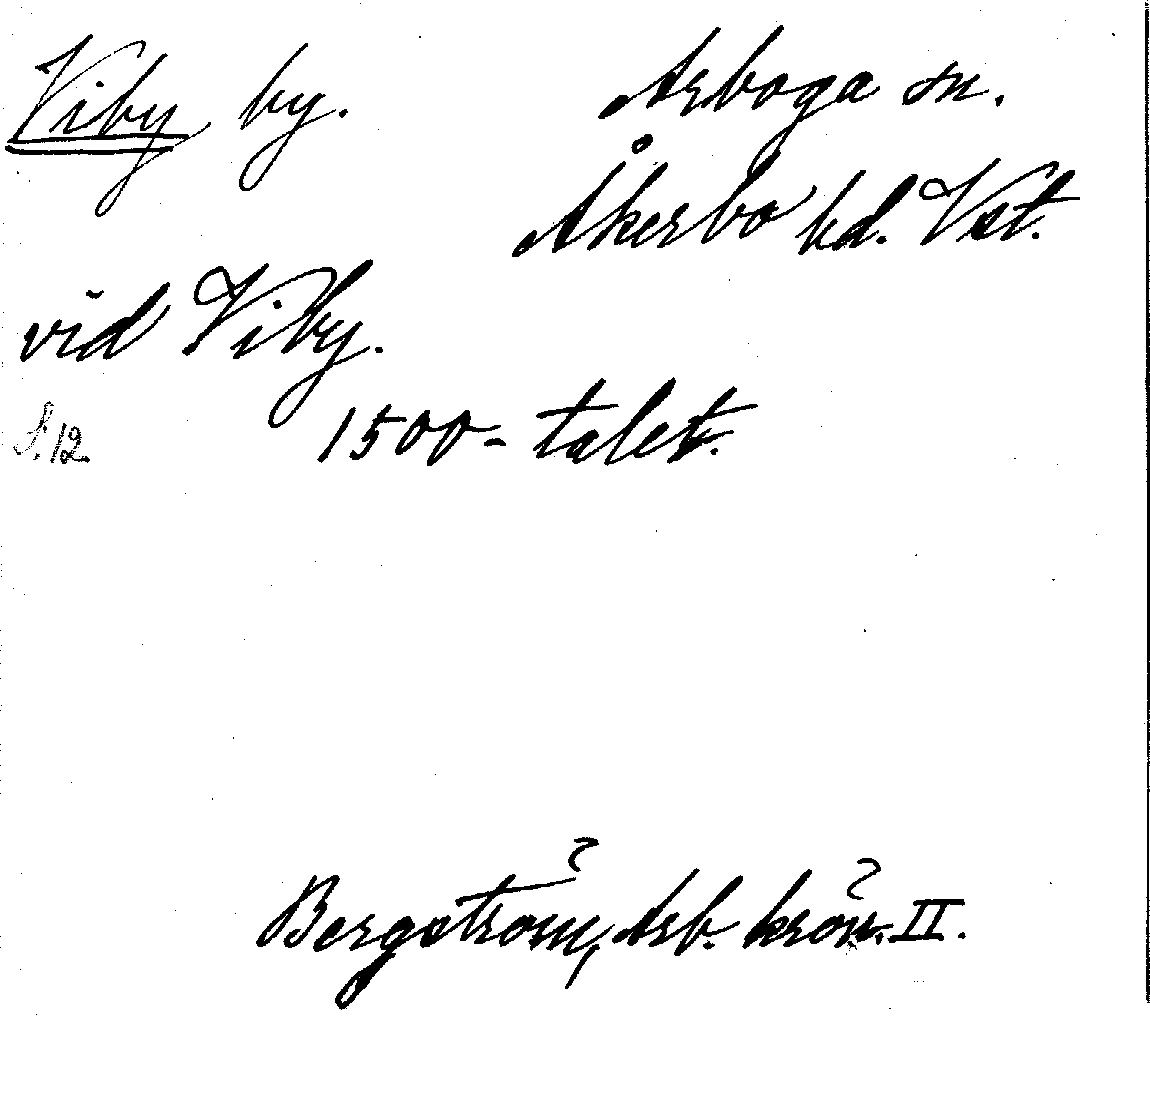 Viby by. Arboga sn.
Åkerbo hd. Vst.
vid Viby.
S. 12. 1500-talet.
Bergström, Arb. krön. II.